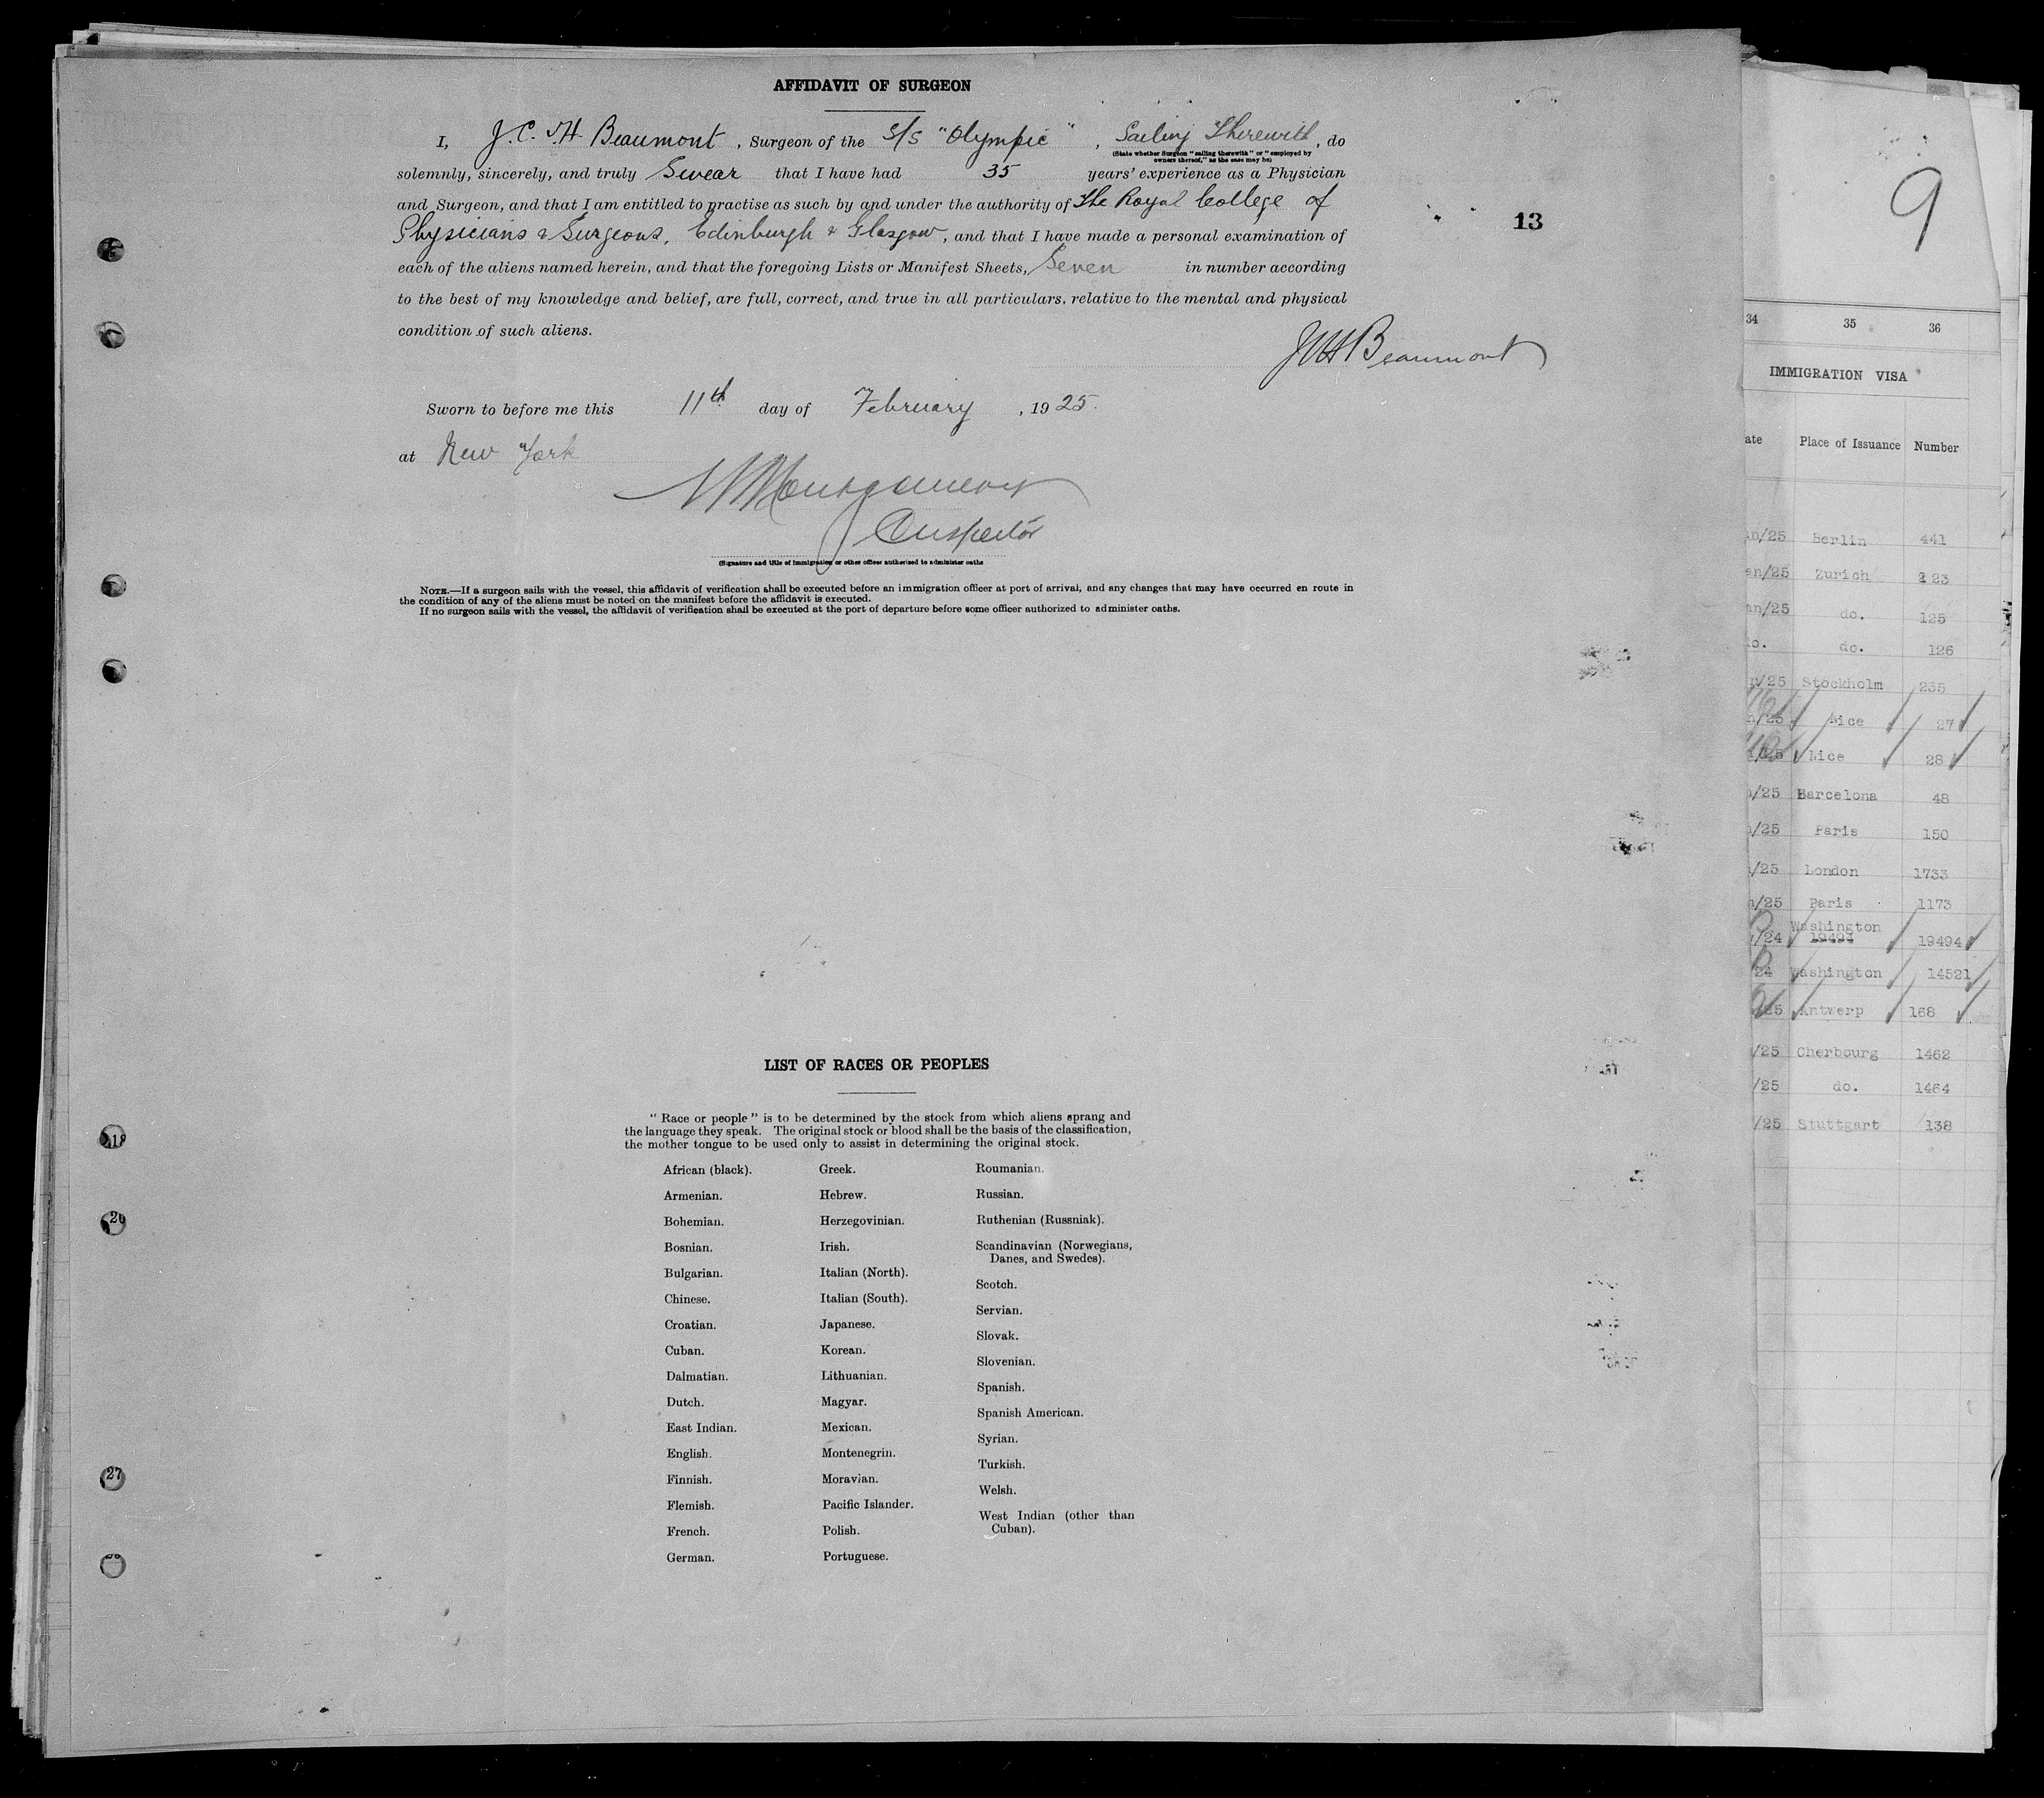 AFFIDAVIT OF SURGEON
I, J. C. H. Beaumont, Surgeon of the S/S "Olympic", Sailing Therewith, do
(State whether Surgeon "sailing therewith" or "employed by
owners thereof," as the case may be)
solemnly, sincerely, and truly Swear that I have had 35 years' experience as a Physician
and Surgeon, and that I am entitled to practise as such by and under the authority of The Royal College of
Physicians & Surgeons, Edinburgh & Glasgow, and that I have made a personal examination of
each of the aliens named herein, and that the foregoing Lists or Manifest Sheets, Seven in number according
to the best of my knowledge and belief, are full, correct, and true in all particulars, relative to the mental and physical
condition of such aliens.
JCHBeaumont
Sworn to before me this 11th day of February, 1925.
at New York
Montgomery
Inspector
(Signature and title of immigration or other officer authorized to administer oaths
NOTE.—If a surgeon sails with the vessel, this affidavit of verification shall be executed before an immigration officer at port of arrival, and any changes that may have occurred en route in
the condition of any of the aliens must be noted on the manifest before the affidavit is executed.
If no surgeon sails with the vessel, the affidavit of verification shall be executed at the port of departure before some officer authorized to administer oaths.
13
LIST OF RACES OR PEOPLES
"Race or people" is to be determined by the stock from which aliens sprang and
the language they speak. The original stock or blood shall be the basis of the classification,
the mother tongue to be used only to assist in determining the original stock.
African (black).
Armenian.
Bohemian.
Bosnian.
Bulgarian.
Chinese.
Croatian.
Cuban.
Dalmatian.
Dutch.
East Indian.
English.
Finnish.
Flemish.
French.
German.
Greek.
Hebrew.
Herzegovinian.
Irish.
Italian (North).
Italian (South).
Japanese.
Korean.
Lithuanian.
Magyar.
Mexican.
Montenegrin.
Moravian.
Pacific Islander.
Polish.
Portuguese.
Roumanian.
Russian.
Ruthenian (Russniak).
Scandinavian (Norwegians,
Danes, and Swedes).
Scotch.
Servian.
Slovak.
Slovenian.
Spanish.
Spanish American.
Syrian.
Turkish.
Welsh.
West Indian (other than
Cuban).
18
20
27
9
34 35 36
IMMIGRATION VISA
ate Place of Issuance Number
an/25 Berlin 441
an/25 Zurich 123
an/25 do. 125
do. do. 126
n/25 Stockholm 235
n/25 Nice 27
/25 Nice 28
/25 Barcelona 48
/25 Paris 150
/25 London 1733
n/25 Paris 1173
Washington
/24 19494 19494
24 Washington 14521
25 Antwerp 168
/25 Cherbourg 1462
/25 do. 1464
/25 Stuttgart 138